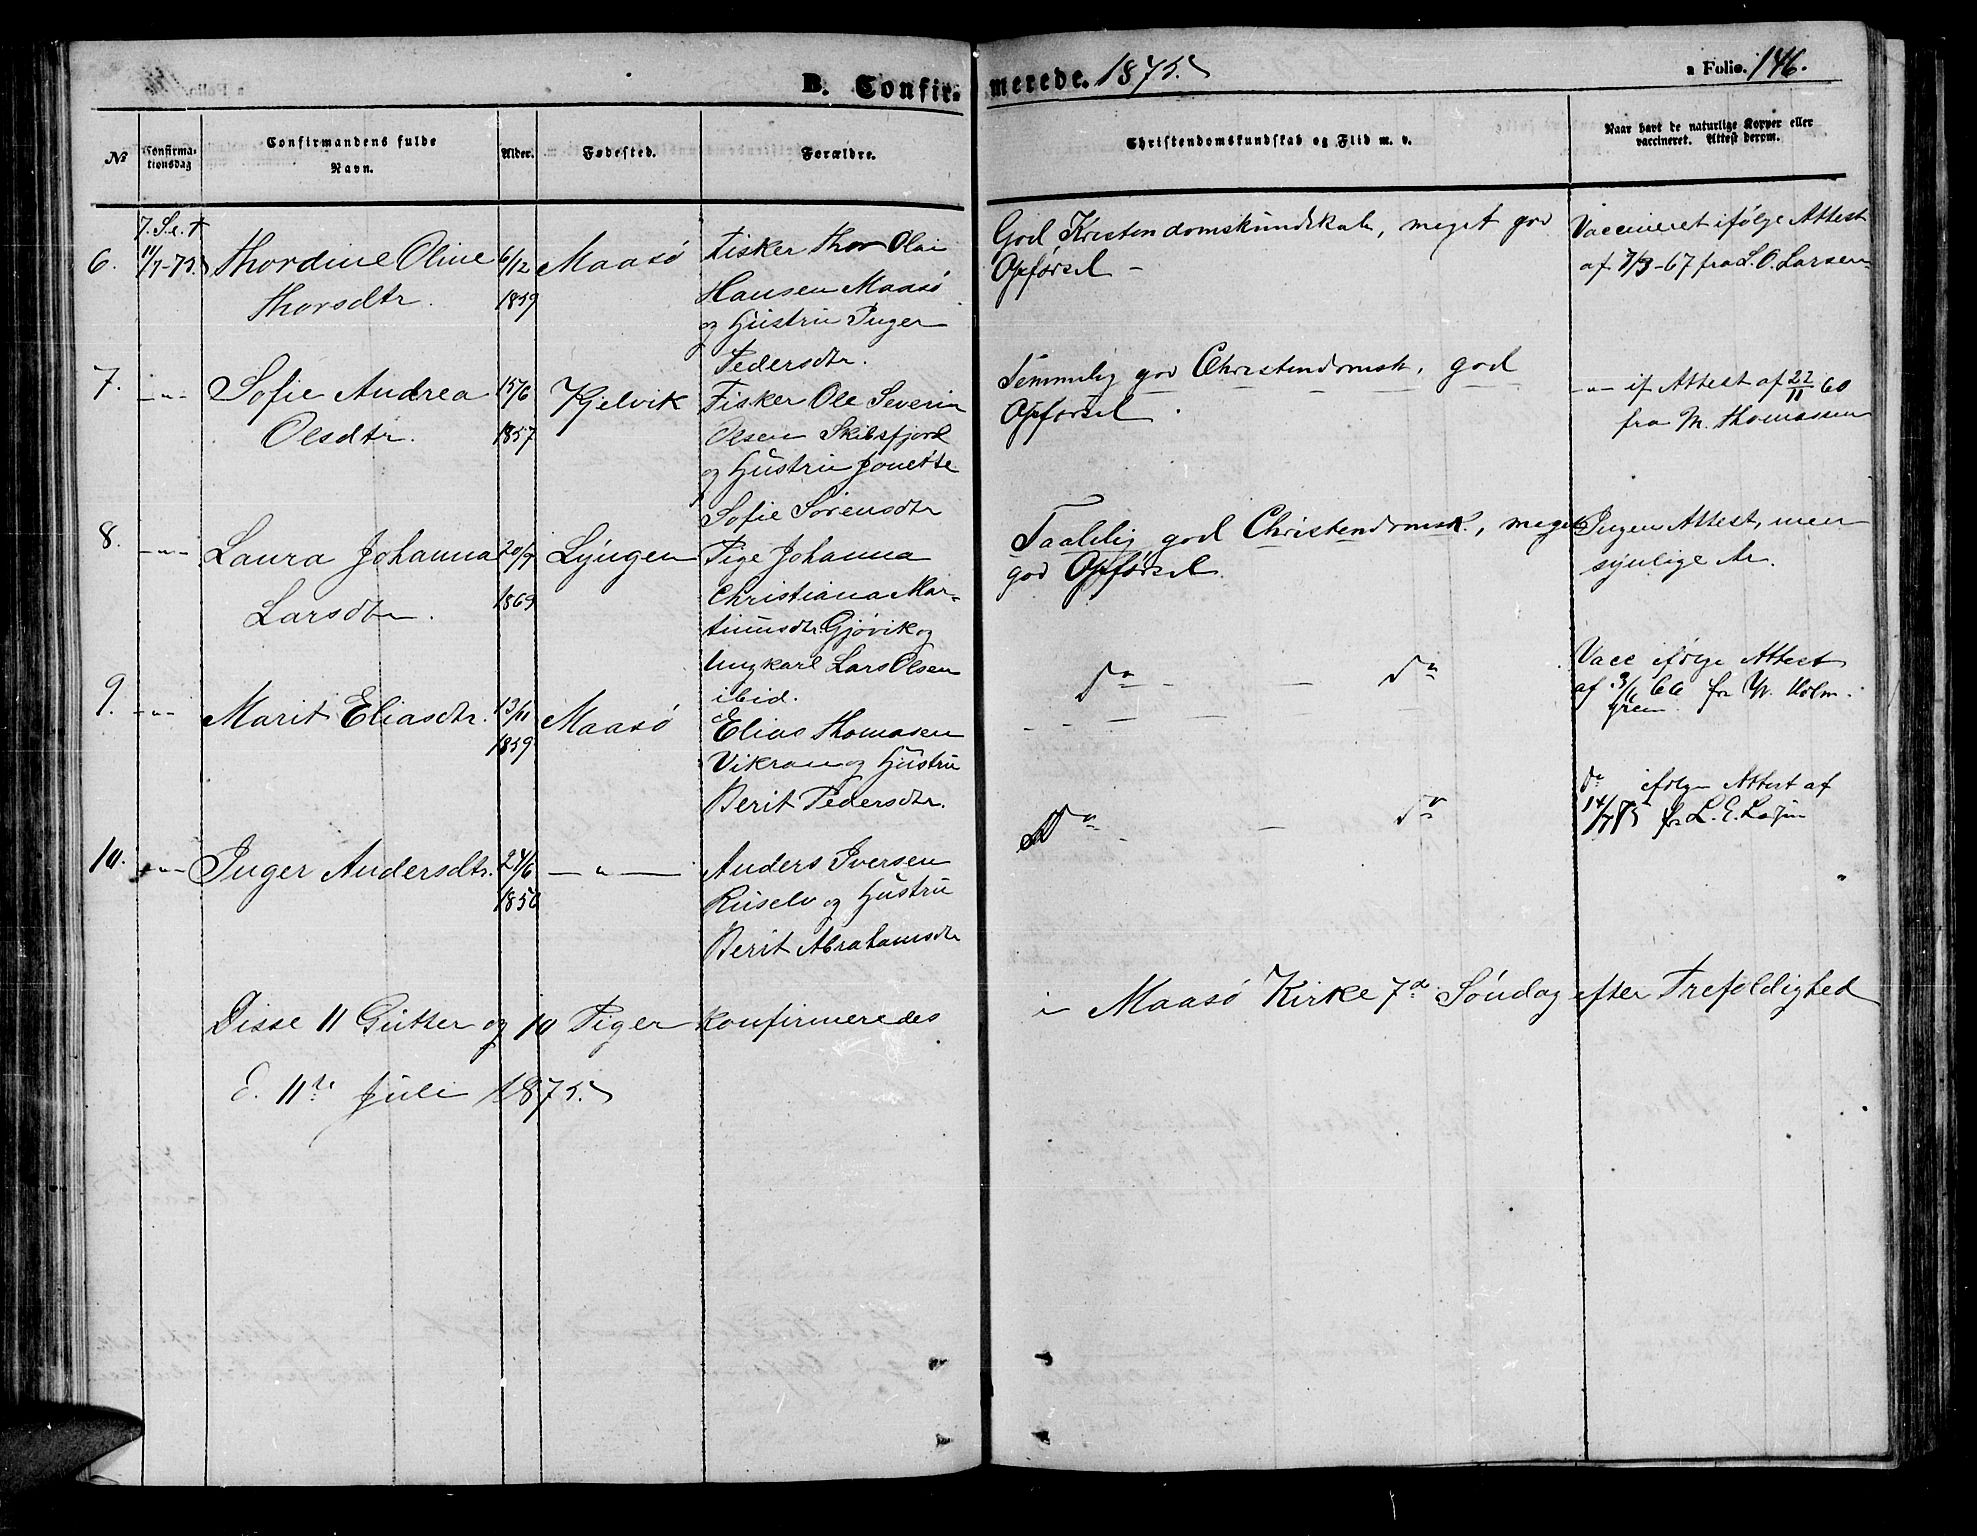 B. Confir-
merede. 1875.
a Folio. 146.
No
Confirmationsdag
Confirmandens fulde Navn.
Alder.
Fødested.
Forældre.
Christendomskundskab og Flid m. v.
Naar havt de naturlige Kopper eller
vaccineret. Attest derom.
6.
7. S. e. t
11/7-75.
Thordine Oline
Thorsdtr.
6/12
1859
Maasö
Fisker Thor Olai
Hansen Maasö
og Hustru Inger
Pedersdtr.
God Kristendomskundskab, meget god
Opførsel –
Vaccineret ifølge Attest
af 7/9-67 fra L. O. Larsen
7.
– " –
Sofie Andrea
Olsdtr.
15/6
1857
Kjelvik
Fisker Ole Severin
Olsen Skibsfjord
og Hustru Jonette
Sofie Sörensdtr
Temmelig god Christendomsk, god
Opførsel.
– " – if Attest af 22/11 60
fra M. Thomassen
8.
– " –
Laura Johanna
Larsdtr.
20/9
1869
Lyngen
Pige Johanna
Christiana Mar-
tinusdtr Gjövik og
Ungkarl Lars Olsen
ibid.
Taalelig god Christendomsk., meget
god Opførsel.
Ingen Attest, men
synlige Ar.
9.
– " –
Marit Eliasdtr.
13/11
1859
Maasö
Elias Thomasen
Vikran og Hustru
Berit Pedersdtr.
Do – – do
Vacc ifølge Attest
af 3/6 66 fr W. Holm-
gren
10.
– " –
Inger Andersdtr.
24/6
1858
– " –
Anders Iversen
og Hustru
Berit Abrahamsdtr
Do – – do
do ifølge Attest af
14/7 75 fr L. E.
Disse 11 Gutter og 10 Piger konfirmeredes
i Maasö Kirke 7de Söndag efter Trefoldighed
d. 11te Juli 1875.